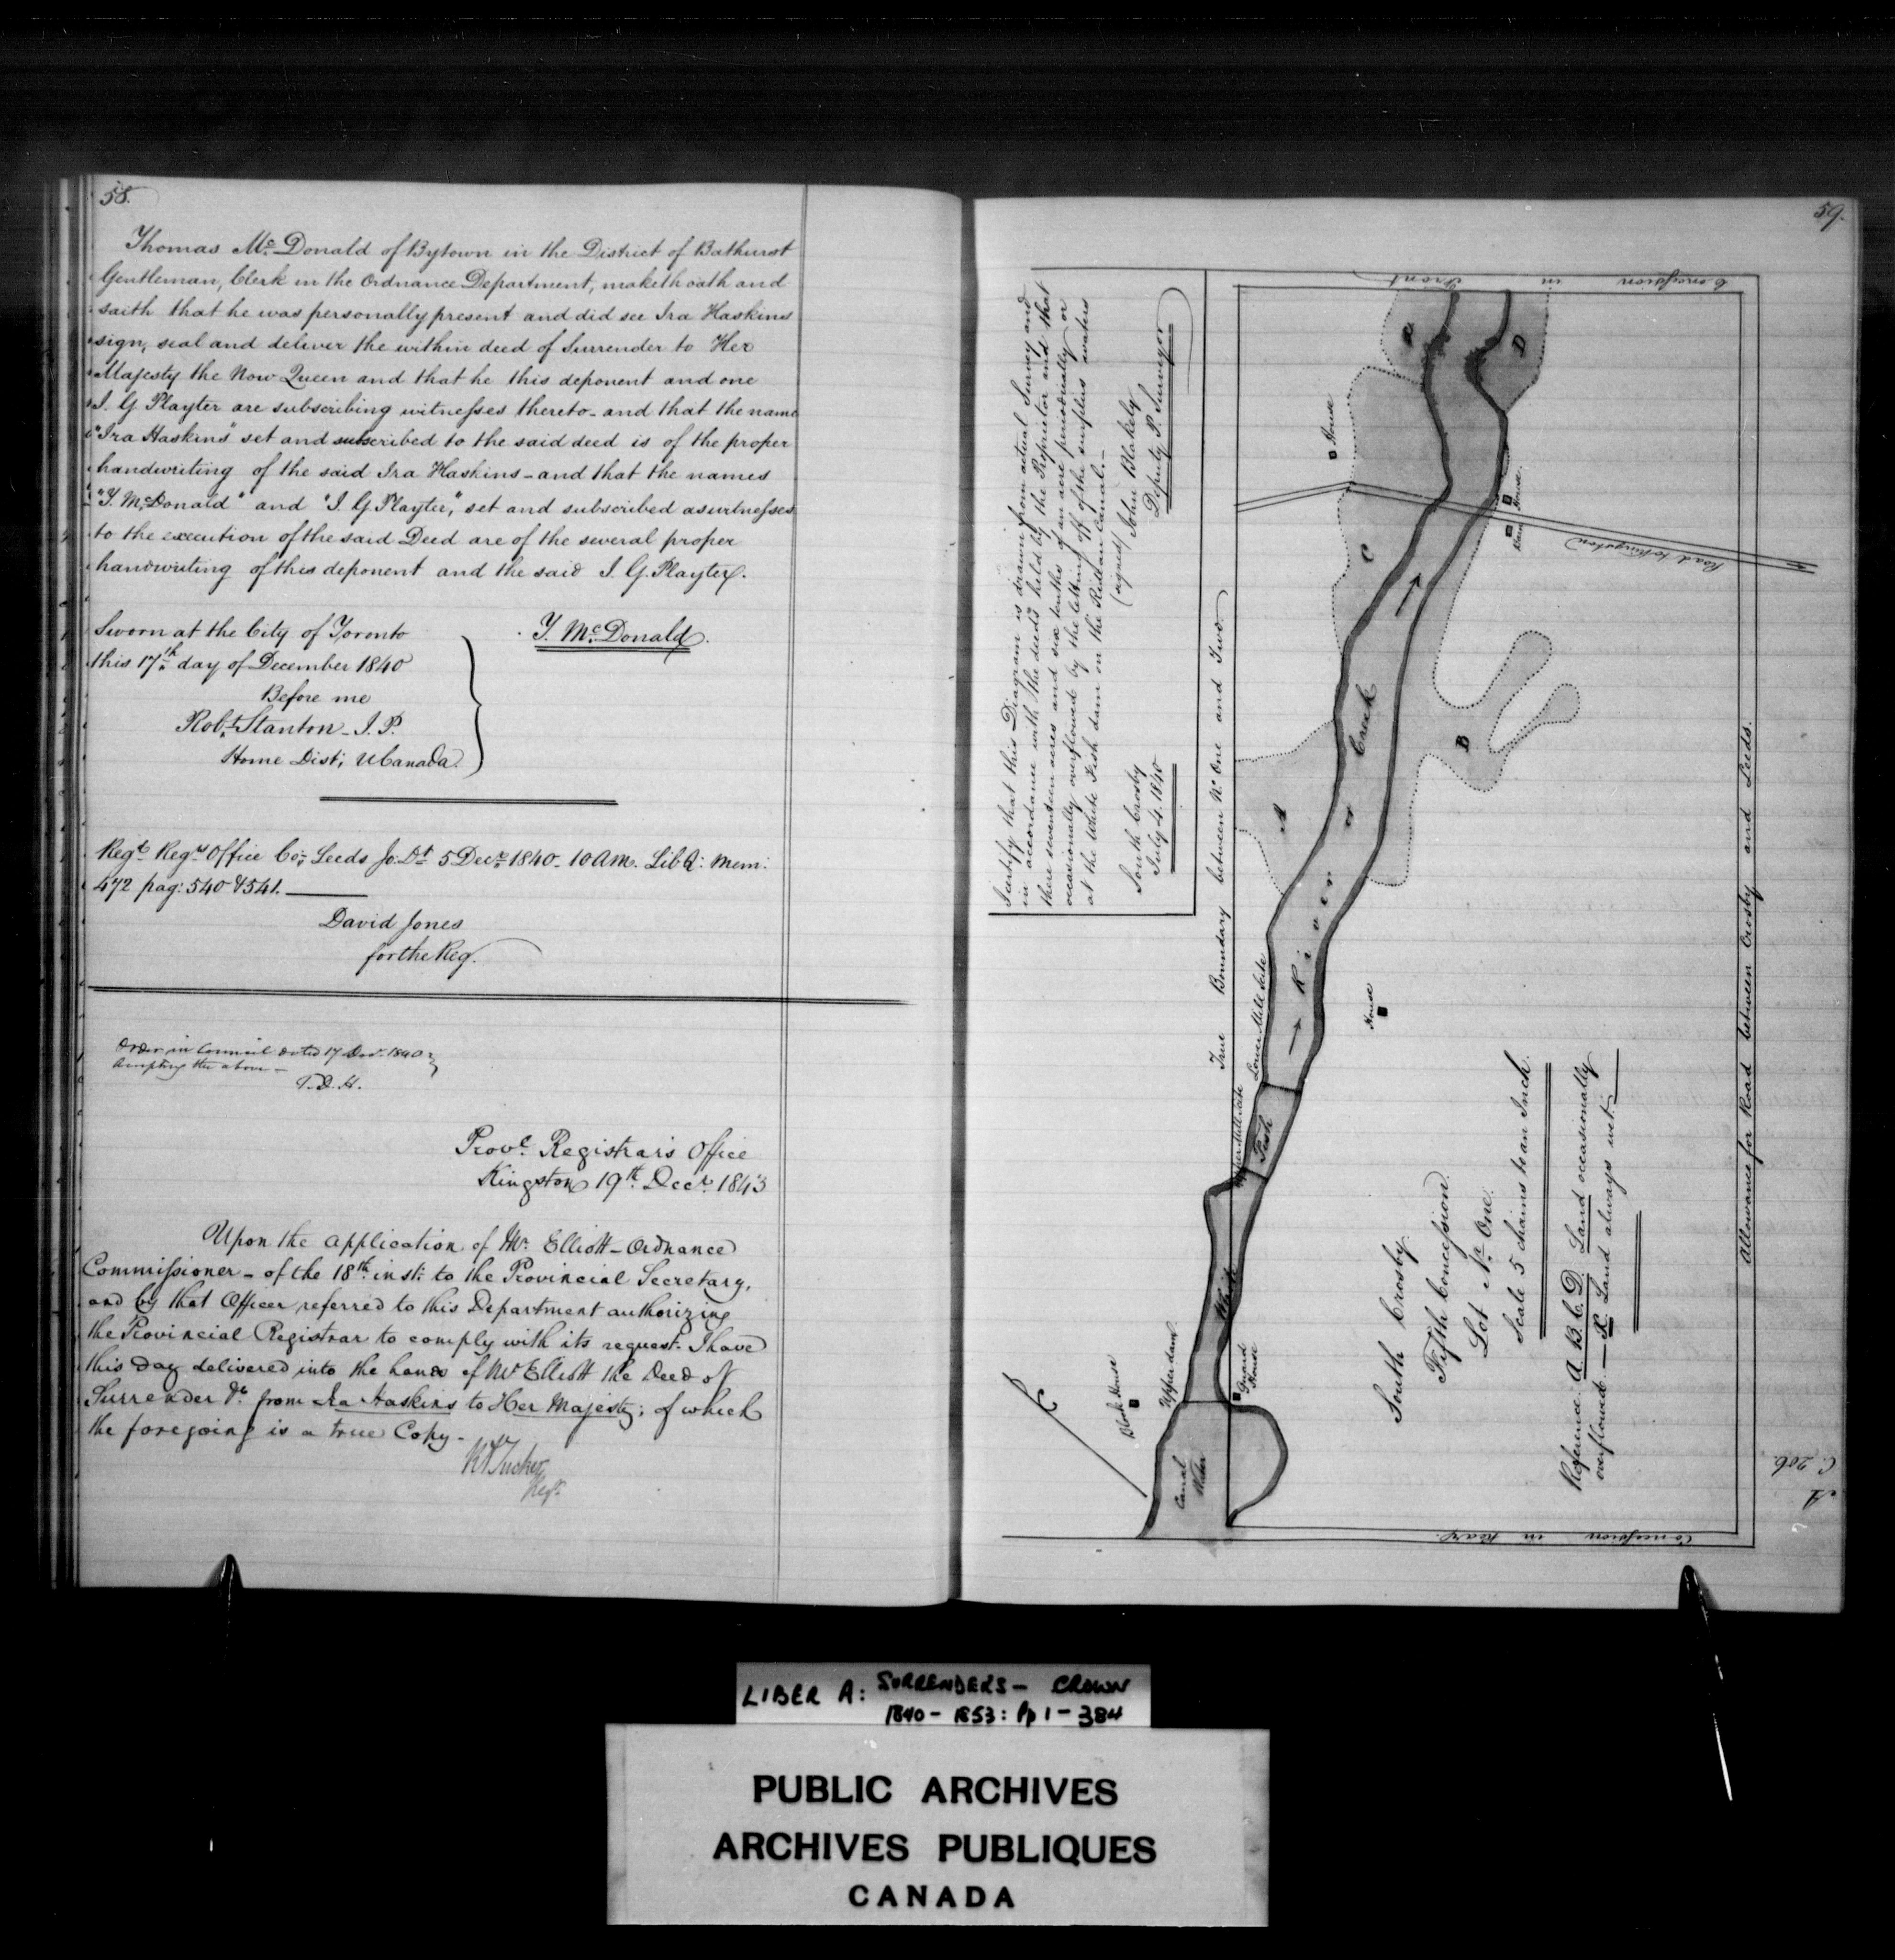 58.
Thomas McDonald of Bytown in the District of Bathurst
Gentleman, Clerk in the Ordnance Department, maketh oath and
saith that he was personally present and did see Ira Haskins
sign, seal and deliver the within deed of Surrender to Her
Majesty the Now Queen and that he this deponent and one
I. G Playter are subscribing witnesses thereto - and that the name
"Ira Haskins" set and subscribed to the said deed is of the proper
handwriting of the said Ira Haskins - and that the names
"T. McDonald" and "I. G Playter," set and subscribed as witnesses
to the execution of the said Deed are of the several proper
handwriting of this deponent and the said I. G. Playter.
Sworn at the City of Toronto
this 17th day of December 1840
Before me
Robt Stanton - J. P.
Home Dist; U Canada.
T. McDonald.
Regd Regrs Office Co; Leeds Jo: Dt 5 Decr 1840 - 10 Am. Lib Q: Mem:
472 pag: 540 & 541.
David Jones
for the Reg.
Order in Council dated 17 Decr. 1840
Accepting the above -
T. D. H.
Provl Registrar's Office
Kingston 19th Decr 1843
Upon the application of Mr. Elliott - Ordnance
Commissioner - of the 18th inst: to the Provincial Secretary,
and by that Officer referred to this Department authorizing
the Provincial Registrar to comply with its request - I have
this day delivered into the hands of Mr Elliott the Deed of
Surrender &c from Ira Haskins to Her Majesty; of which
the foregoing is a true Copy -
R A Tucker
Regr.
59.
I certify that this Diagram is drawn from actual Survey and
in accordance with the deeds held by the Proprietor and that
there seventeen acres and six tenths of an acre periodically or
occasionally overflowed by the letting off of the surplus waters
at the White Fish dam on the Rideau Canal. -
(signed) John Blakely
Deputy P. Surveyor
South Crosby
July 4. 1840
True Boundary between No One and Two
Concession in Front
E
D
House
House
Barn
Road to Kingston
C
B
A
River or Creek
Lower Mill Site
Upper Mill site
House
Fish
White
Guard
House
Upper dam
Block House
Canal
Water
South Crosby.
Fifth Concession.
Lot No One.
Scale 5 chains to an Inch.
Reference. A. B. C. D. Land occasionally
overflowed. — E Land always wet. —
Allowance for Road between Crosby and Leeds.
Concession in Rear.
C. 206.
A
LIBER A: SURRENDERS - CROWN
1840 - 1853: Pp 1 - 384
PUBLIC ARCHIVES
ARCHIVES PUBLIQUES
CANADA